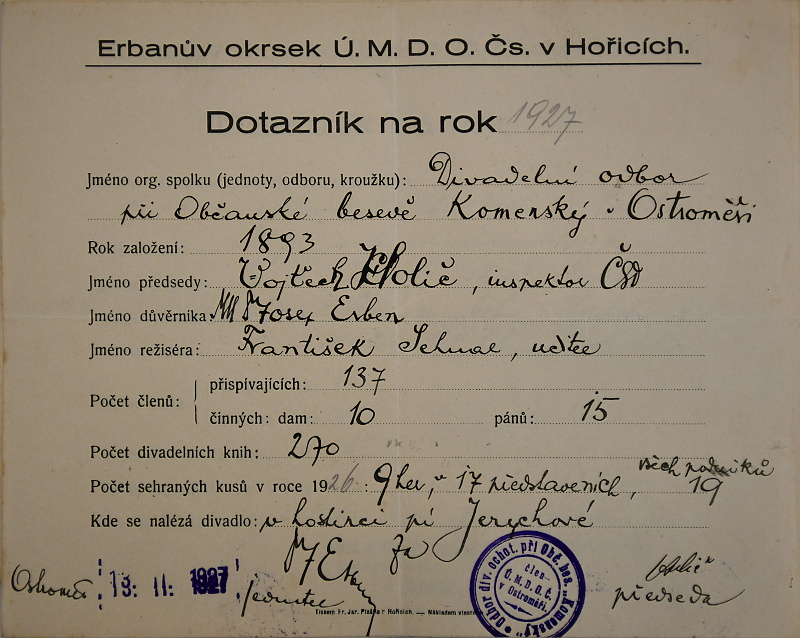 Erbanův okrsek Ú. M. D. O. Čs. v Hořicích.
Dotazník na rok 1927
Jméno org. spolku (jednoty, odboru, kroužku): Divadelní odbor
při Občanské besedě Komenský v Ostroměři
Rok založení: 1893
Jméno předsedy: Vojtěch Holič, inspektor ČSD
Jméno důvěrníka: Josef Erben
Jméno režiséra: František Sehnal, učitel
Počet členů: přispívajících: 137
činných: dam: 10 pánů: 15
Počet divadelních knih: 270
všech podniků
Počet sehraných kusů v roce 1926: 9 her, v 17 představeních, 19
Kde se nalézá divadlo: v hostinci pí Jerychové
Za
Ostroměř 13. II. 1927
jednatel
předseda
Tiskem Fr. Jar. v Hořicích. — Nákladem
Odbor div. ochot. při Obč. bes. "Komenský"
člen
Ú. M. D. O. Č.
v Ostroměři.